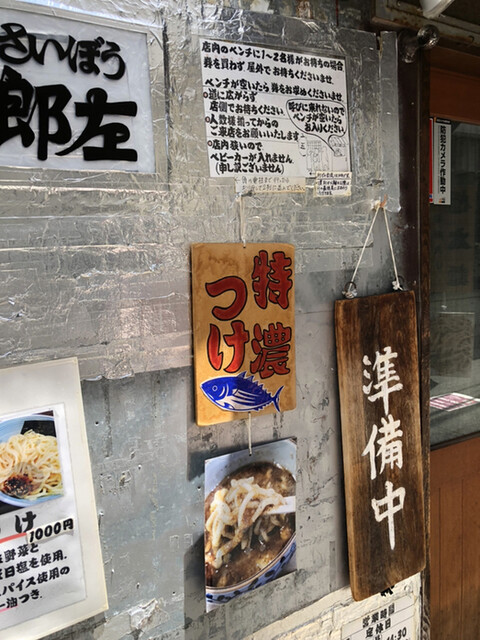 さいぼう
郎左
店内のベンチに1~2名様がお待ちの場合
券を買わず屋外でお待ちくださいませ
ベンチが空いたら券をお求めくださいませ
•道に広がらず
店側でお待ちください
•人数様揃ってからの
ご来店をお願いいたします
•店内狭いので
ベビーカーが入れません
(申し訳ございません)
呼びに来れないので
ベンチが空いたら
お入りください
防犯カメラ作動中
特濃
つけ
準備中
け
1000円
野菜と
日塩を使用.
パイス使用の
ー油つき.
営業時間
定休日